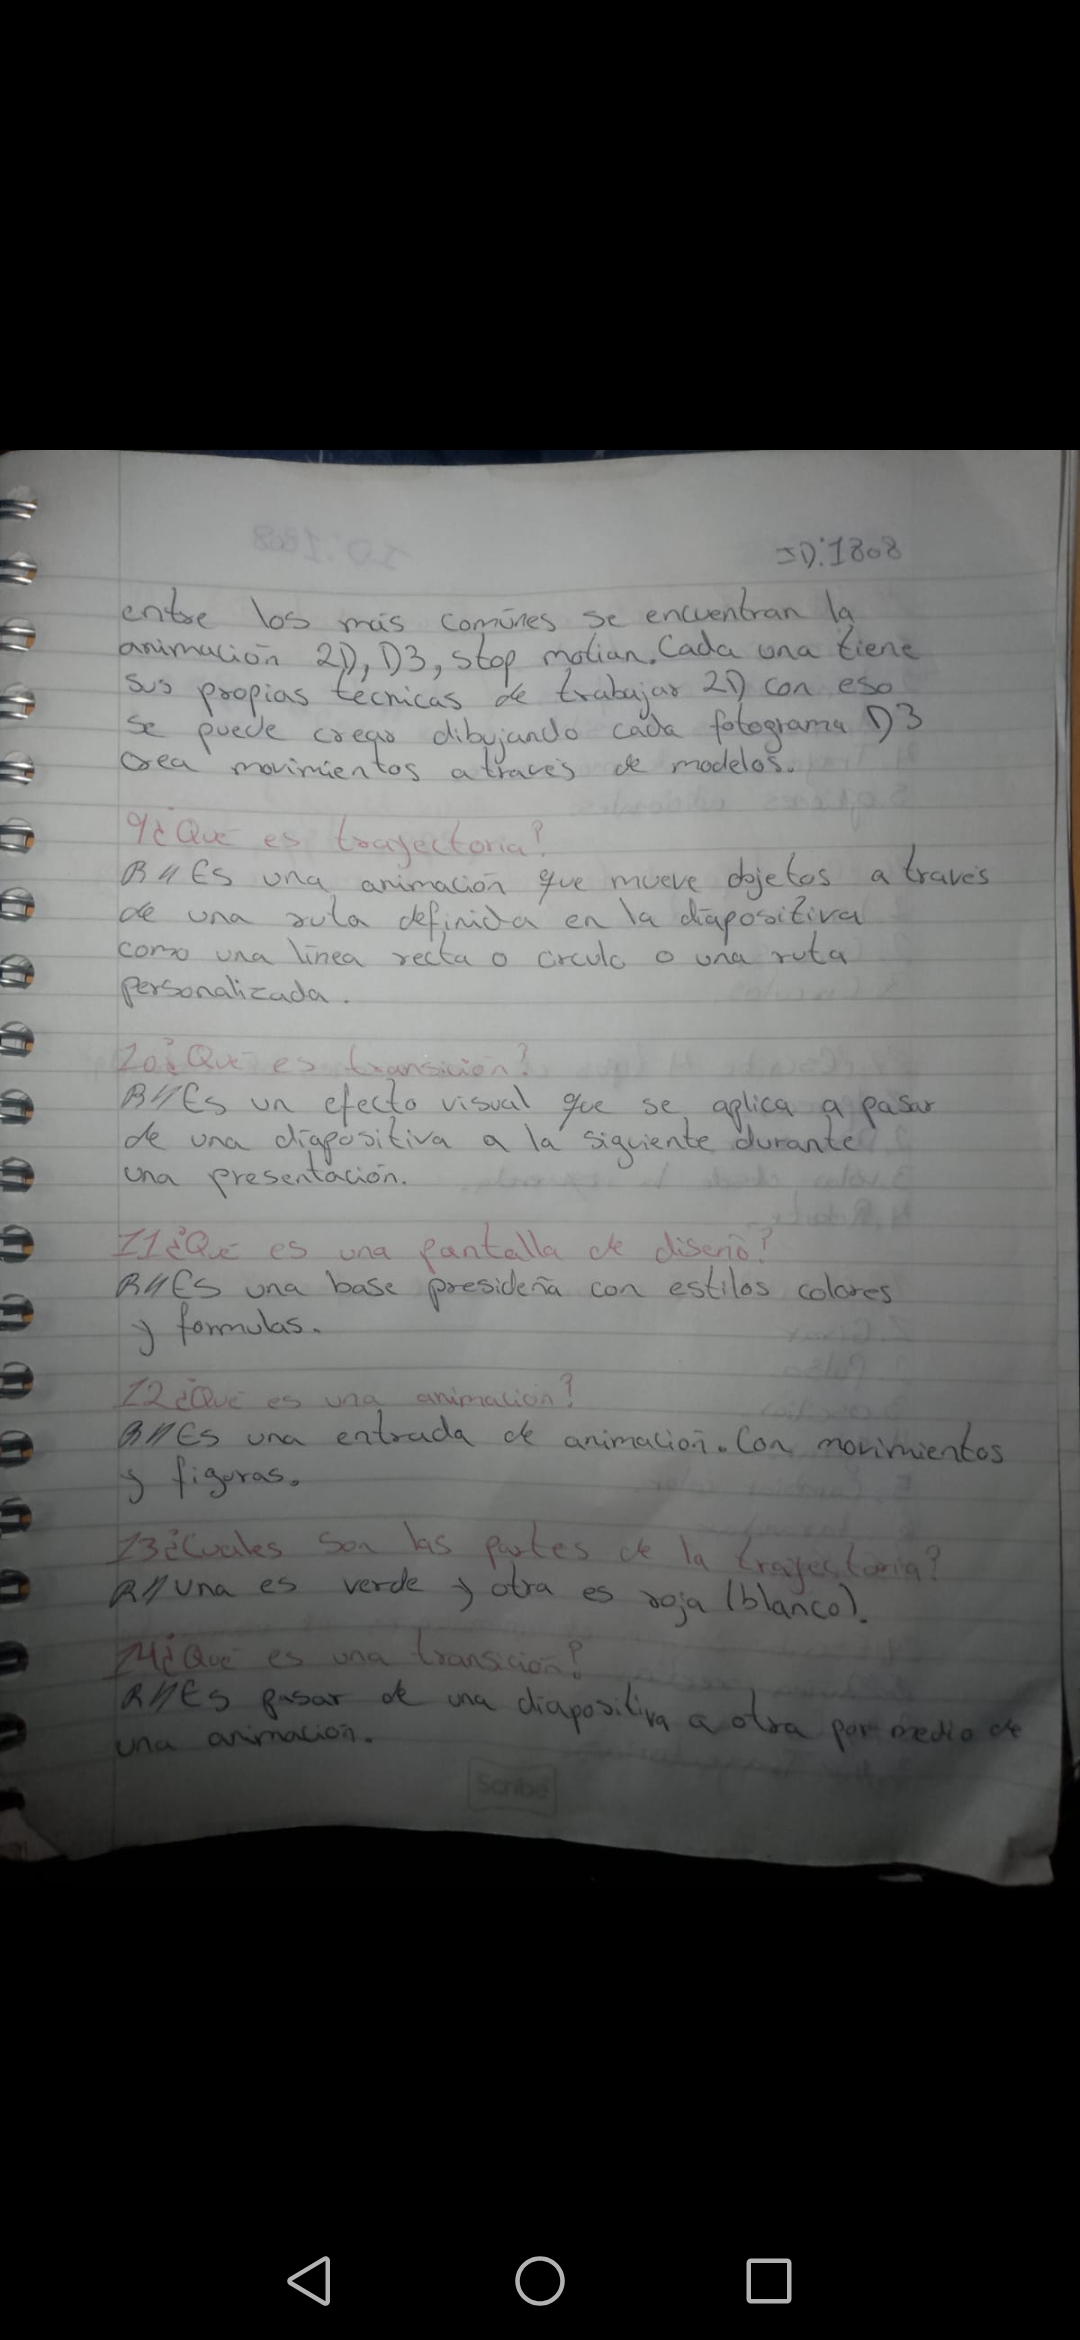 ID:1808
entre los más comúnes se encuentran la
animación 2D, D3, stop motian. Cada una tiene
sus propias tecnicas de trabajar 2D con eso
se puede crear dibujando cada fotograma D3
crea movimientos a través de modelos.
9¿Qué es trayectoria?
R// Es una animación que mueve objetos a través
de una ruta definida en la diapositiva
como una línea recta o circulo o una ruta
personalizada.
10¿Qué es transición?
R// Es un efecto visual que se aplica a pasar
de una diapositiva a la siguiente durante
una presentación.
11¿Qué es una pantalla de diseño?
R// Es una base presideña con estilos colores
y formulas.
12¿Qué es una animación?
R// Es una entrada de animación. Con movimientos
y figuras.
13¿Cuales son las partes de la trayectoria?
R// Una es verde y otra es roja (blanco).
14¿Qué es una transición?
R// Es pasar de una diapositiva a otra por medio de
una animación.
Scribe